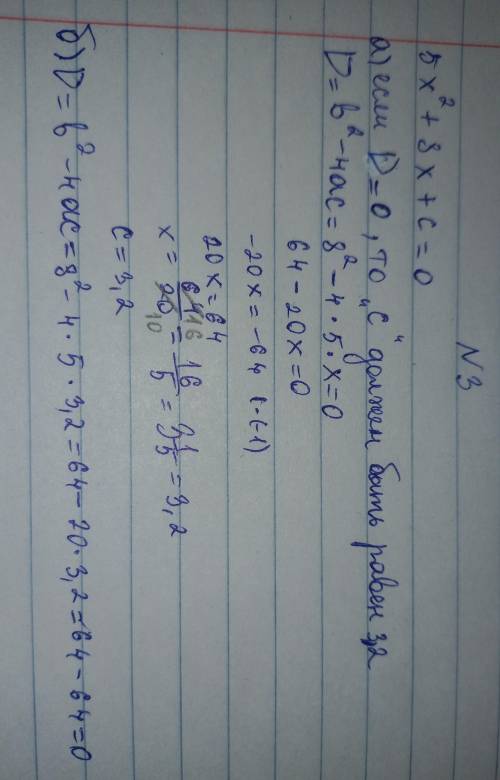 N 3
5x² + 8x + c = 0
а) если D = 0, то "c" должен быть равен 3,2
D = b² - 4ac = 8² - 4 · 5 · x = 0
64 - 20x = 0
-20x = -64 | · (-1)
20x = 64
x = 64 16 / 20 10 = 16/5 = 3 1/5 = 3,2
c = 3,2
б) D = b² - 4ac = 8² - 4 · 5 · 3,2 = 64 - 20 · 3,2 = 64 - 64 = 0